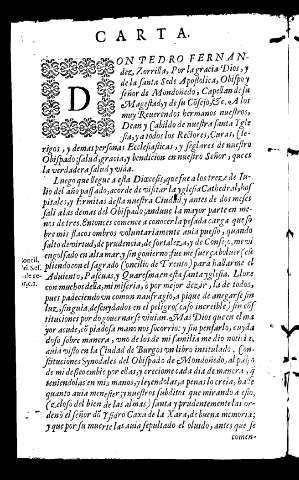 CARTA.
DON PEDRO FERNAN-
dez, Zorrilla, Por la gracia Dios, y
de la santa Sede Apostolica, Obispo y
señor de Mondoñedo, Capellan de su
Magestad, y de su Cōsejo, &c. A los
muy Reuerendos hermanos nuestros,
Dean y Cabildo de nuestra santa Ygle
sia, y a todos los Rectores, Curas, Cle-
rigos, y demas personas Ecclesiasticas, y seglares de nuestro
Obispado; salud, gracia, y bendicion en nuestro Señor, que es
la verdadera salud y vida.
Luego que llegue a esta Diocesis, que fue a los trece de Iu-
lio del año passado, acorde de visitar la yglesia Cathedral, hos
pitales, y Ermitas desta nuestra Ciudad y antes de dos meses
sali a las demas del Obispado, anduue la mayor parte en me-
nos de tres. Entonces comence a conocer la pesada carga que so
bre mis flacos ombros voluntariamente auia puesto, quando
falto de virtud, de prudencia, de fortaleza, y de Consejo, me vi
engolfado en alta mar, y sin gouierno fue me fuerça boluer (cū
pliendo con el sagrado Concilio de Trento) para hallarme el
Aduiento, Pascuas, y Quaresma en esta santa yglesia. Llora
con muchos della, mi miseria, o por mejor dezir, la de todos,
pues padeciendo vn comun naufragio, a pique de anegarse sin
luz, singuia, descuydados en el peligro (caso increible) sin cōs
tituciones por do gouernarse viuian. Mas Dios que en el ma
yor acude, cō piadosa mano nos socorrio: y sin pensarlo, cuyda
doso sobre manera, vno de los de mi familia me dio noticia,
auia visto en la Ciudad de Burgos vn libro intitulado. Cons
tituciones Synodales del Obispado de Mondoñedo, al paso
de mi desseo embie por ellas, y crecio me cada dia de manera, q̄
teniendolas en mis manos, y leyendolas, a penas lo creia, hasta
quanto auia menester, y nuestros subditos que mirando a esto,
(zeloso del bien de las almas) santa y prudentemente las or-
denō el señor dō Ysidro Caxa de la Xara, de buena memoria;
y que por su muerte las auia sepultado el oluido, antes que se
comen-